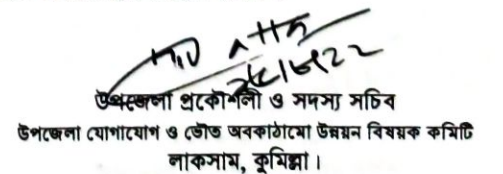 উপজেলা প্রকৌশলী ও সদস্য সচিব
উপজেলা যোগাযোগ ও ভৌত অবকাঠামো উন্নয়ন বিষয়ক কমিটি
লাকসাম, কুমিল্লা।